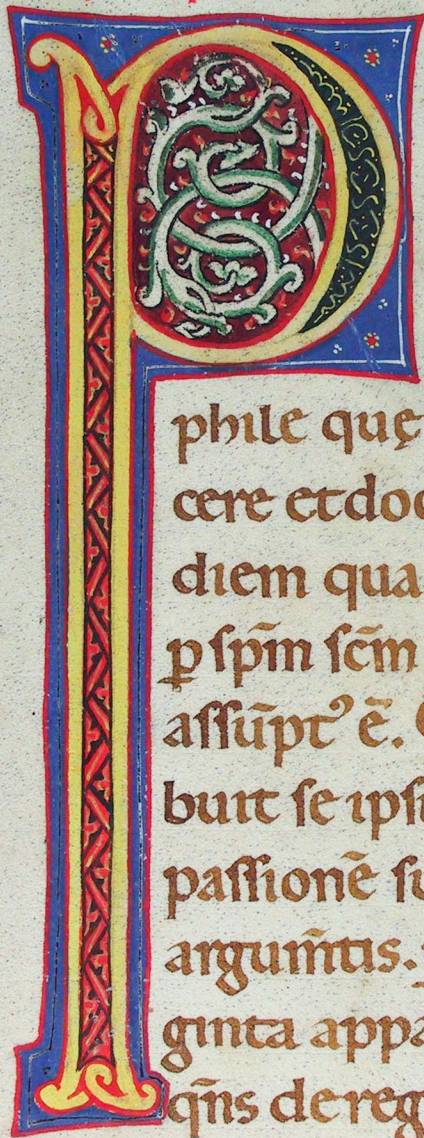 P
phile quę
cere et doc
diem qua
p̱ sp̄m sc̄m
assūptꝰ ē.
buit se ips
passionē su
argum̄tis.
ginta appa
qn̄s de reg